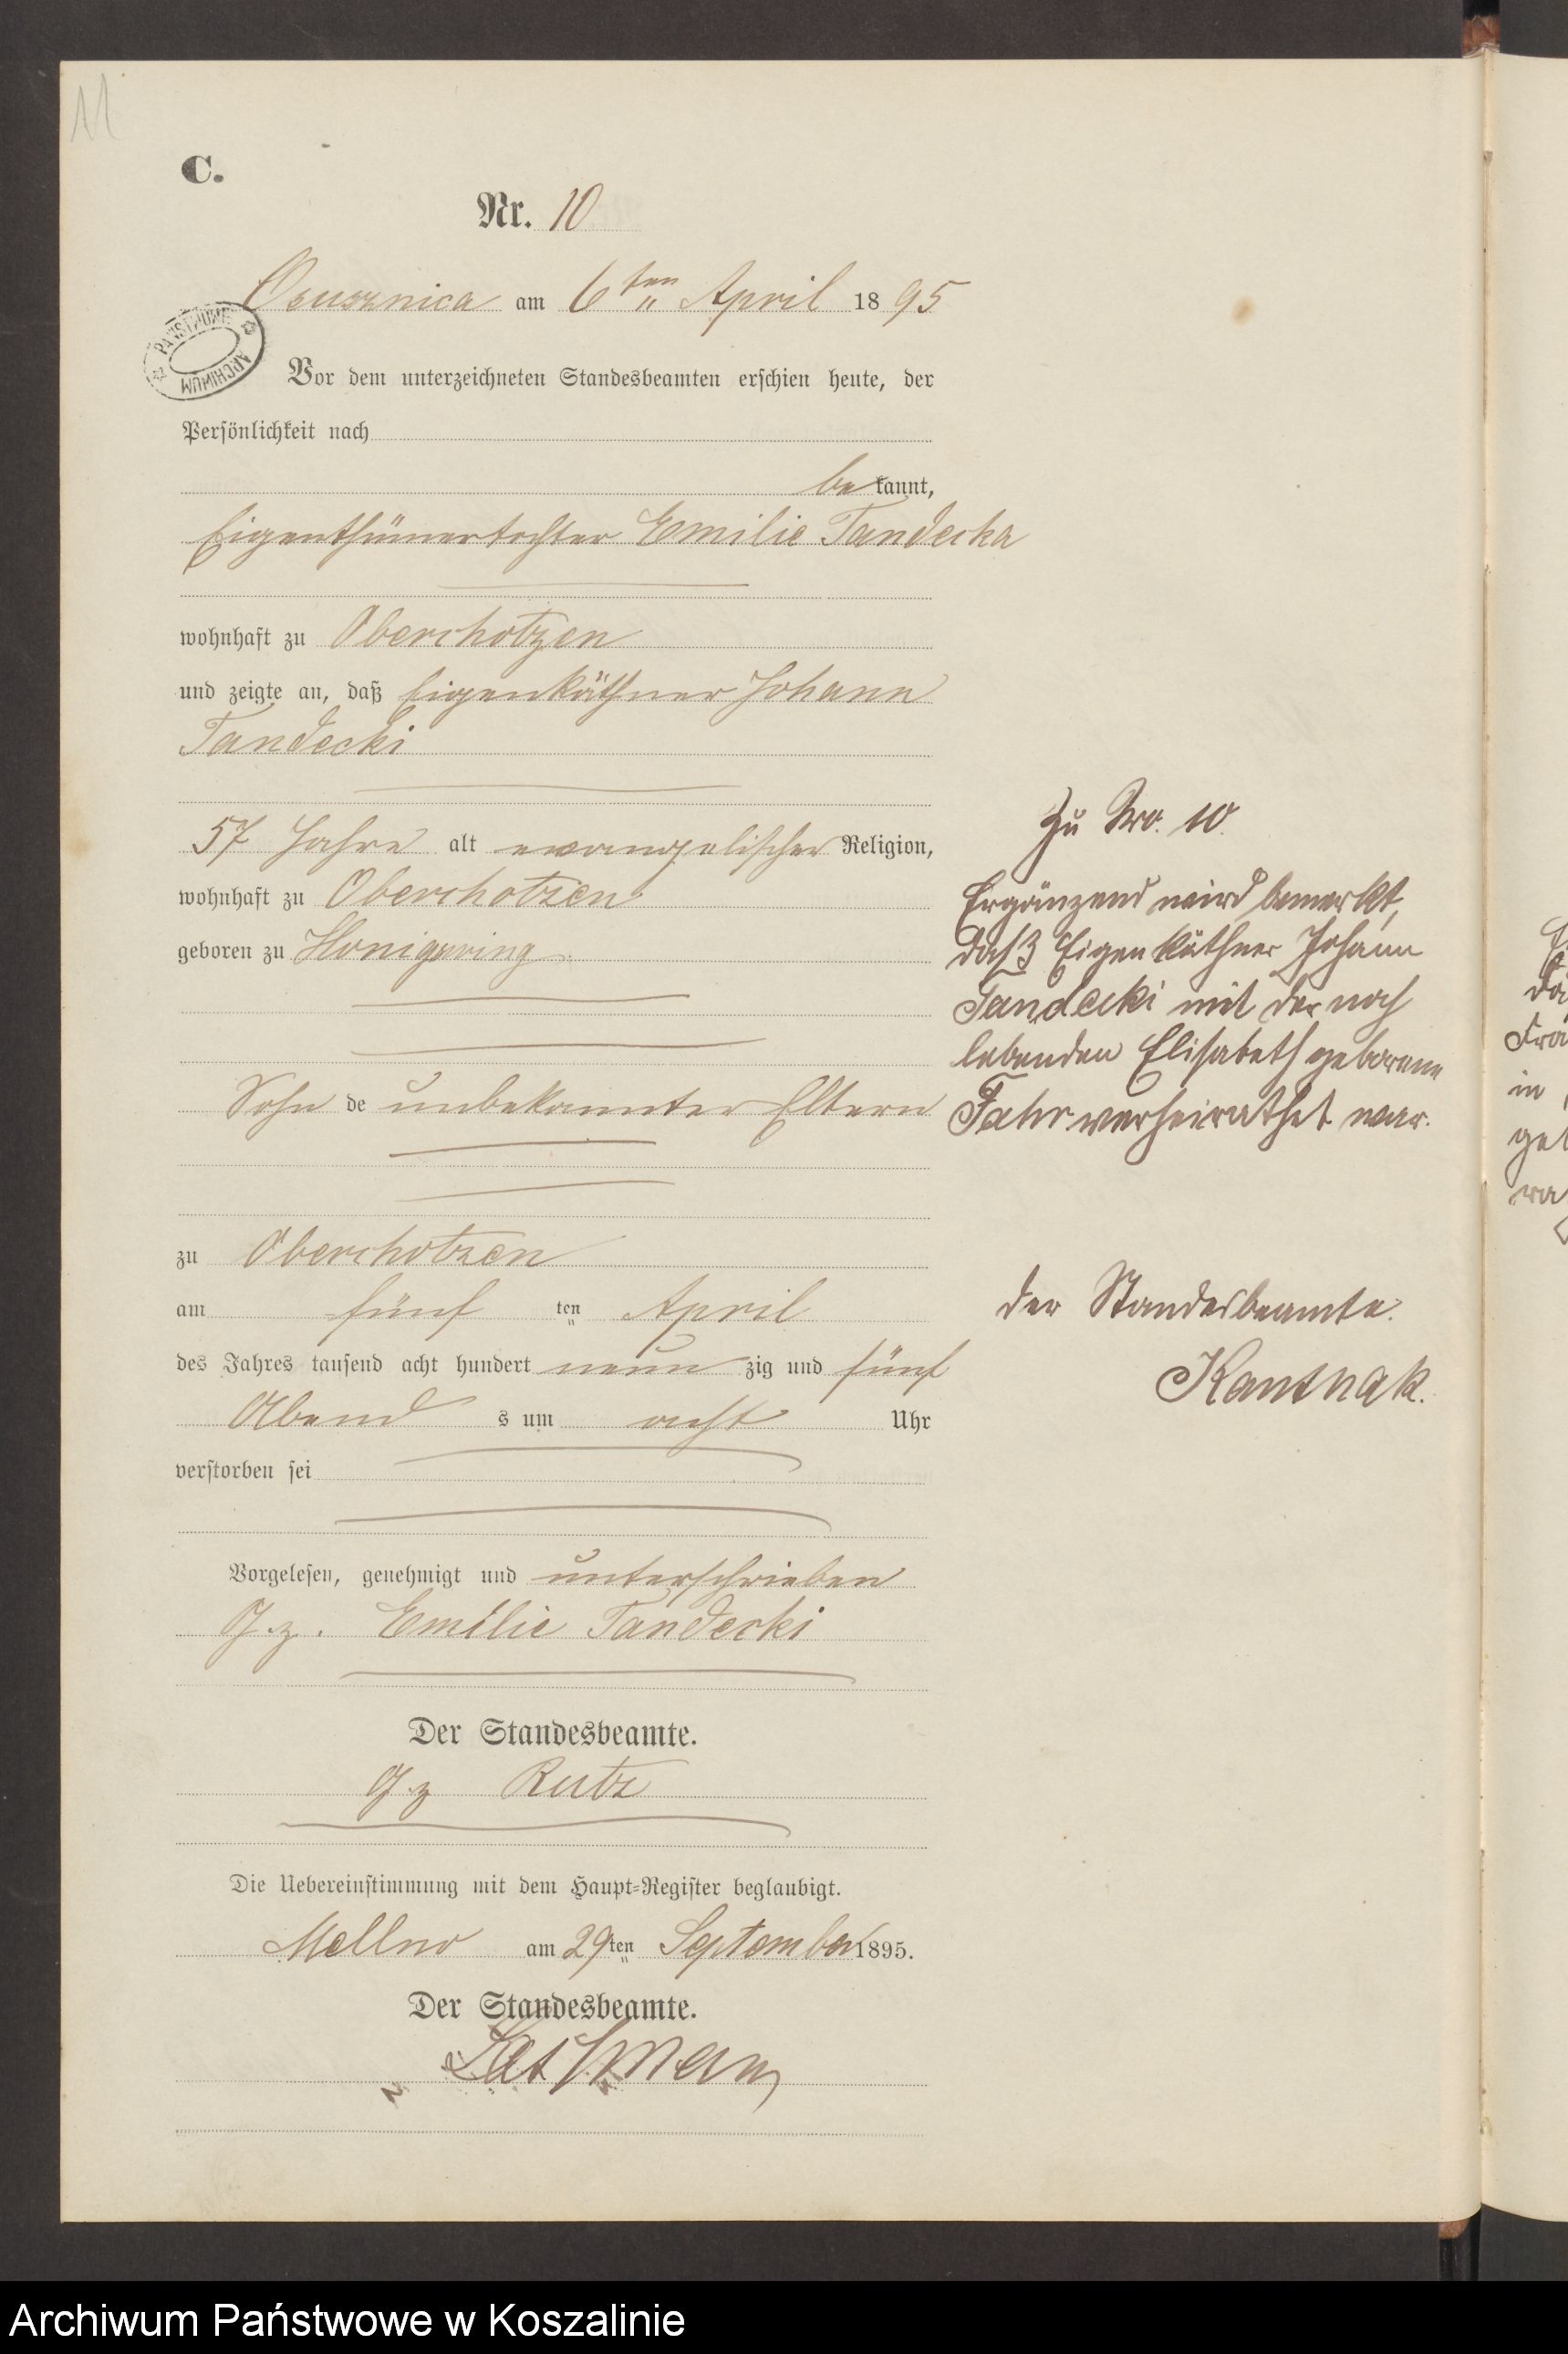 11
C.
Nr. 10
Osusznica am 6ten April 1895
PAŃSTWOWE
ARCHIWUM
Vor dem unterzeichneten Standesbeamten erschien heute, der
Persönlichkeit nach
bekannt,
Eigenthümertochter Emilie Tandecka
wohnhaft zu Oberchotzen
und zeigte an, daß Eigenkäthner Johann
Tandecki
57 Jahre alt evangelischer Religion,
wohnhaft zu Oberchotzen
geboren zu
Sohn de unbekannter Eltern
zu Oberchotzen
am fünf ten April
des Jahres tausend acht hundert neun zig und fünf
Abend s um acht Uhr
verstorben sei
Vorgelesen, genehmigt und unterschrieben
Gz. Emilie Tandecki
Der Standesbeamte.
Gz Rutz
Die Uebereinstimmung mit dem Haupt-Register beglaubigt.
Mellno am 29ten September 1895.
Der Standesbeamte.
Zu Nro. 10.
Ergänzend wird bemerkt,
daß Eigenkäthner Johann
Tandecki mit der noch
lebenden Elisabeth geborene
Fahr verheirathet war.
Der Standesbeamte.
Kantnak.
Archiwum Państwowe w Koszalinie